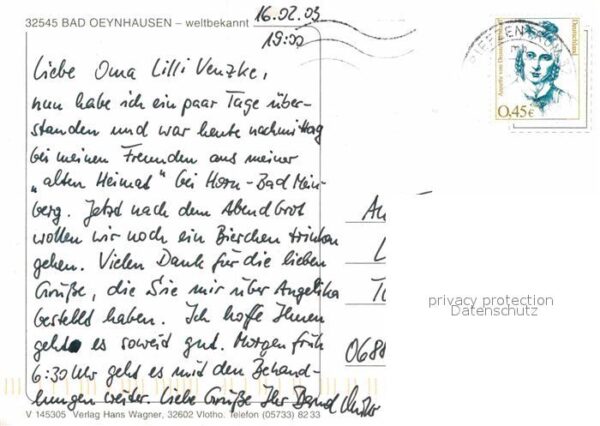 32545 BAD OEYNHAUSEN – weltbekannt
16.02.03
19:00
Liebe Oma Lilli Venzke,
nun habe ich ein paar Tage über-
standen und war heute nachmittag
bei meinen Freunden aus meiner
„alten Heimat" bei Horn-Bad Mein-
berg. Jetzt nach dem Abendbrot
wollen wir noch ein Bierchen trinken
gehen. Vielen Dank für die lieben
Grüße, die Sie mir über Angelika
bestellt haben. Ich hoffe Ihnen
geht es soweid gut. Morgen früh
6:30 Uhr geht es mid den Behand-
lungen weiter. Liebe Grüße Ihr Bernd
V 145305 Verlag Hans Wagner, 32602 Vlotho. Telefon (05733) 82 33
Deutschland
Annette von Droste-Hülshoff
0,45€
An
L
0686
privacy protection
Datenschutz